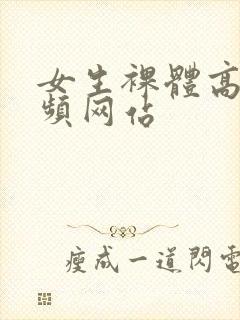 女生裸體高
頻网佔
瘦成一道閃電